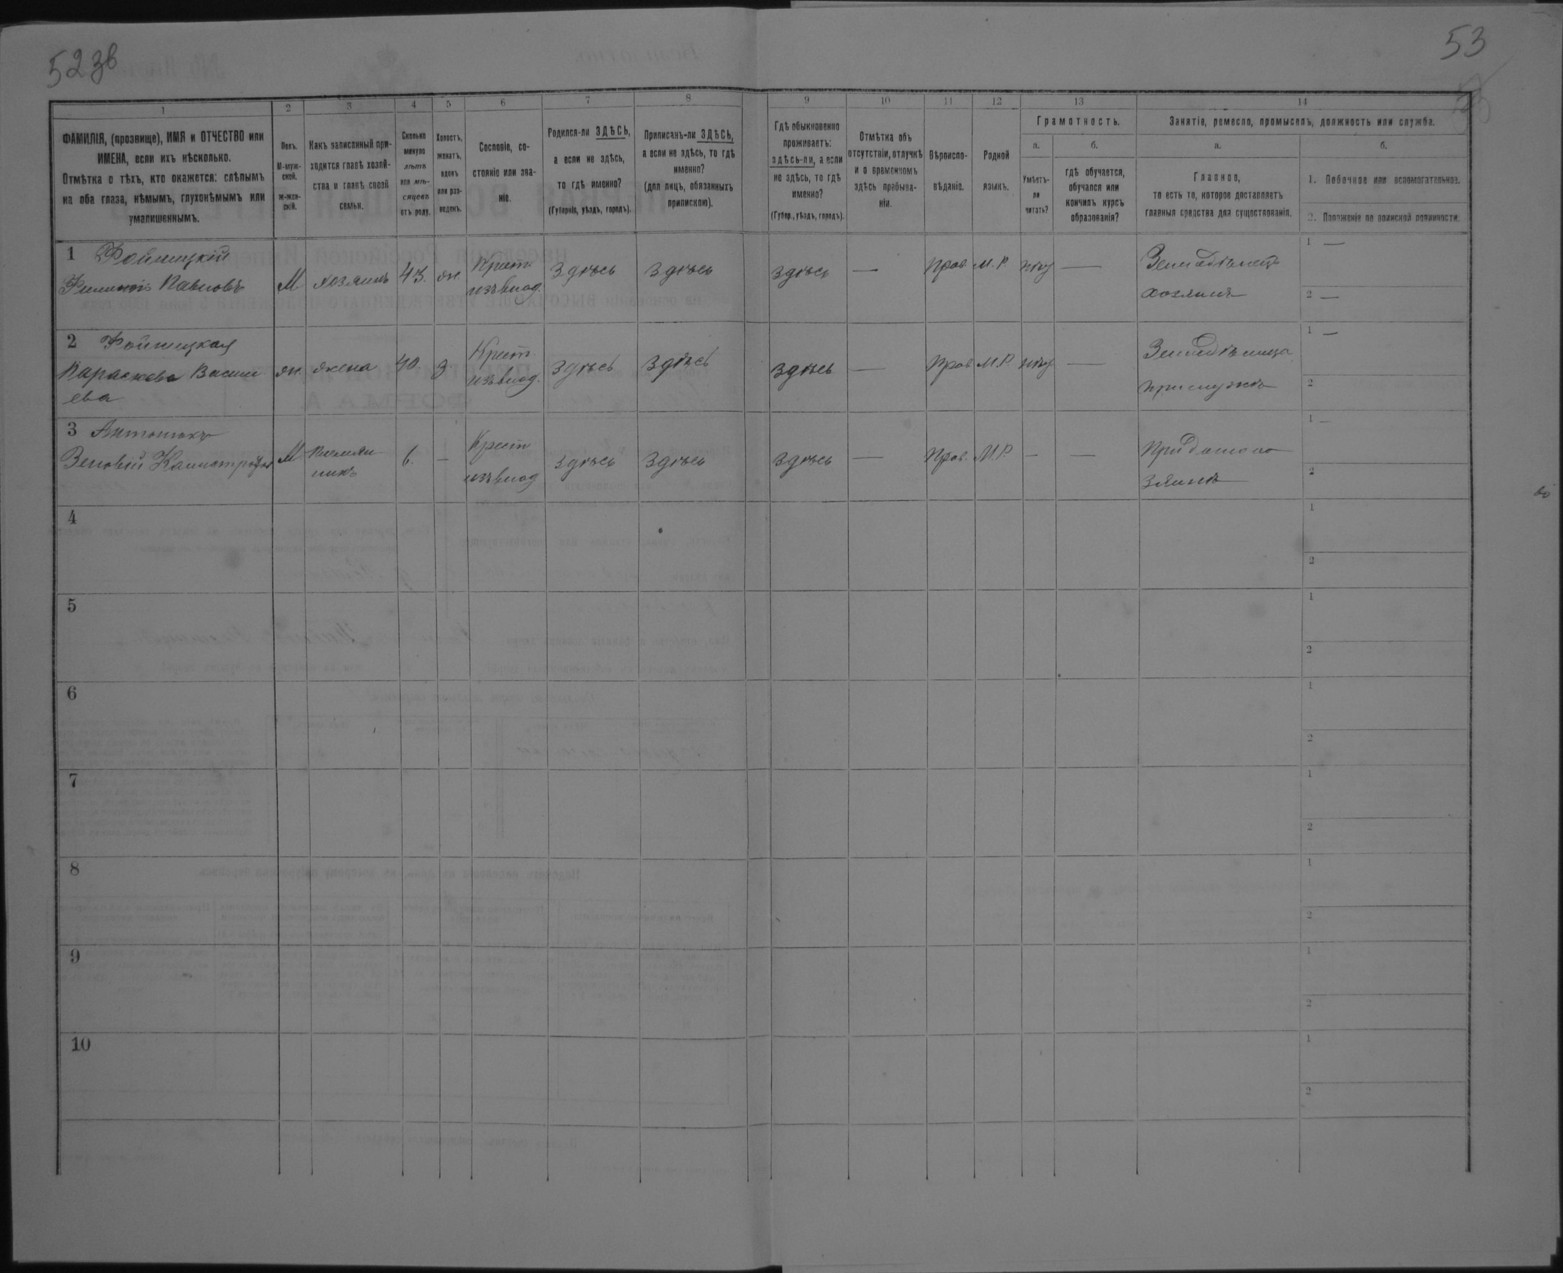 52 зв
53
1
2
3
4
5
6
7
8
9
10
11
12
13
14
ФАМИЛІЯ, (прозвище), ИМЯ и ОТЧЕСТВО или
ИМЕНА, если ихъ нѣсколько.
Отмѣтка о тѣхъ, кто окажется: слѣпымъ
на оба глаза, нѣмымъ, глухонѣмымъ или
умалишеннымъ.
Полъ.
М-муж-
ской.
Ж-жен-
скій.
Какъ записанный при-
ходится главѣ хозяй-
ства и главѣ своей
семьи.
Сколько
минуло
лѣтъ
или мѣ-
сяцевъ
отъ роду.
Холостъ,
женатъ,
вдовъ
или раз-
веденъ.
Сословіе, со-
стояніе или зва-
ніе.
Родился-ли ЗДѢСЬ,
а если не здѣсь,
то гдѣ именно?
(Губернія, уѣздъ, городъ).
Приписанъ-ли ЗДѢСЬ,
а если не здѣсь, то гдѣ
именно?
(для лицъ, обязанныхъ
припискою).
Гдѣ обыкновенно
проживаетъ:
здѣсь-ли, а если
не здѣсь, то гдѣ
именно?
(Губер., уѣздъ, городъ).
Отмѣтка объ
отсутствіи, отлучкѣ
и о временномъ
здѣсь пребыва-
ніи.
Вѣроиспо-
вѣданіе.
Родной
языкъ.
Грамотность.
а.
Умѣетъ-
ли
читать?
б.
гдѣ обучается,
обучался или
кончилъ курсъ
образованія?
Занятіе, ремесло, промыселъ, должность или служба.
а.
Главное,
то есть то, которое доставляетъ
главныя средства для существованія.
б.
1. Побочное или вспомогательное.
2. Положеніе по воинской повинности.
1 Фойницкій
Филиппъ Павловъ
М
хозяинъ
43.
ж.
Крест
изъ влад.
Здѣсь
Здѣсь
здѣсь
—
Прав
М.Р.
нѣт
—
Земледѣлецъ
хозяинъ
1 —
2 —
2 Фойницкая
Параскева Васили
ева
ж.
жена
40
З
Крест
изъ влад.
Здѣсь
Здѣсь
здѣсь
—
Прав
М.Р.
нѣт
—
1 —
2
3 Антонюкъ
Зеновій
М
6.
—
Крест
изъ влад
здѣсь
Здѣсь
здѣсь
—
Прав
М.Р.
—
—
При
1 —
2
4
1
2
5
1
2
6
1
2
7
1
2
8
1
2
9
1
2
10
1
2